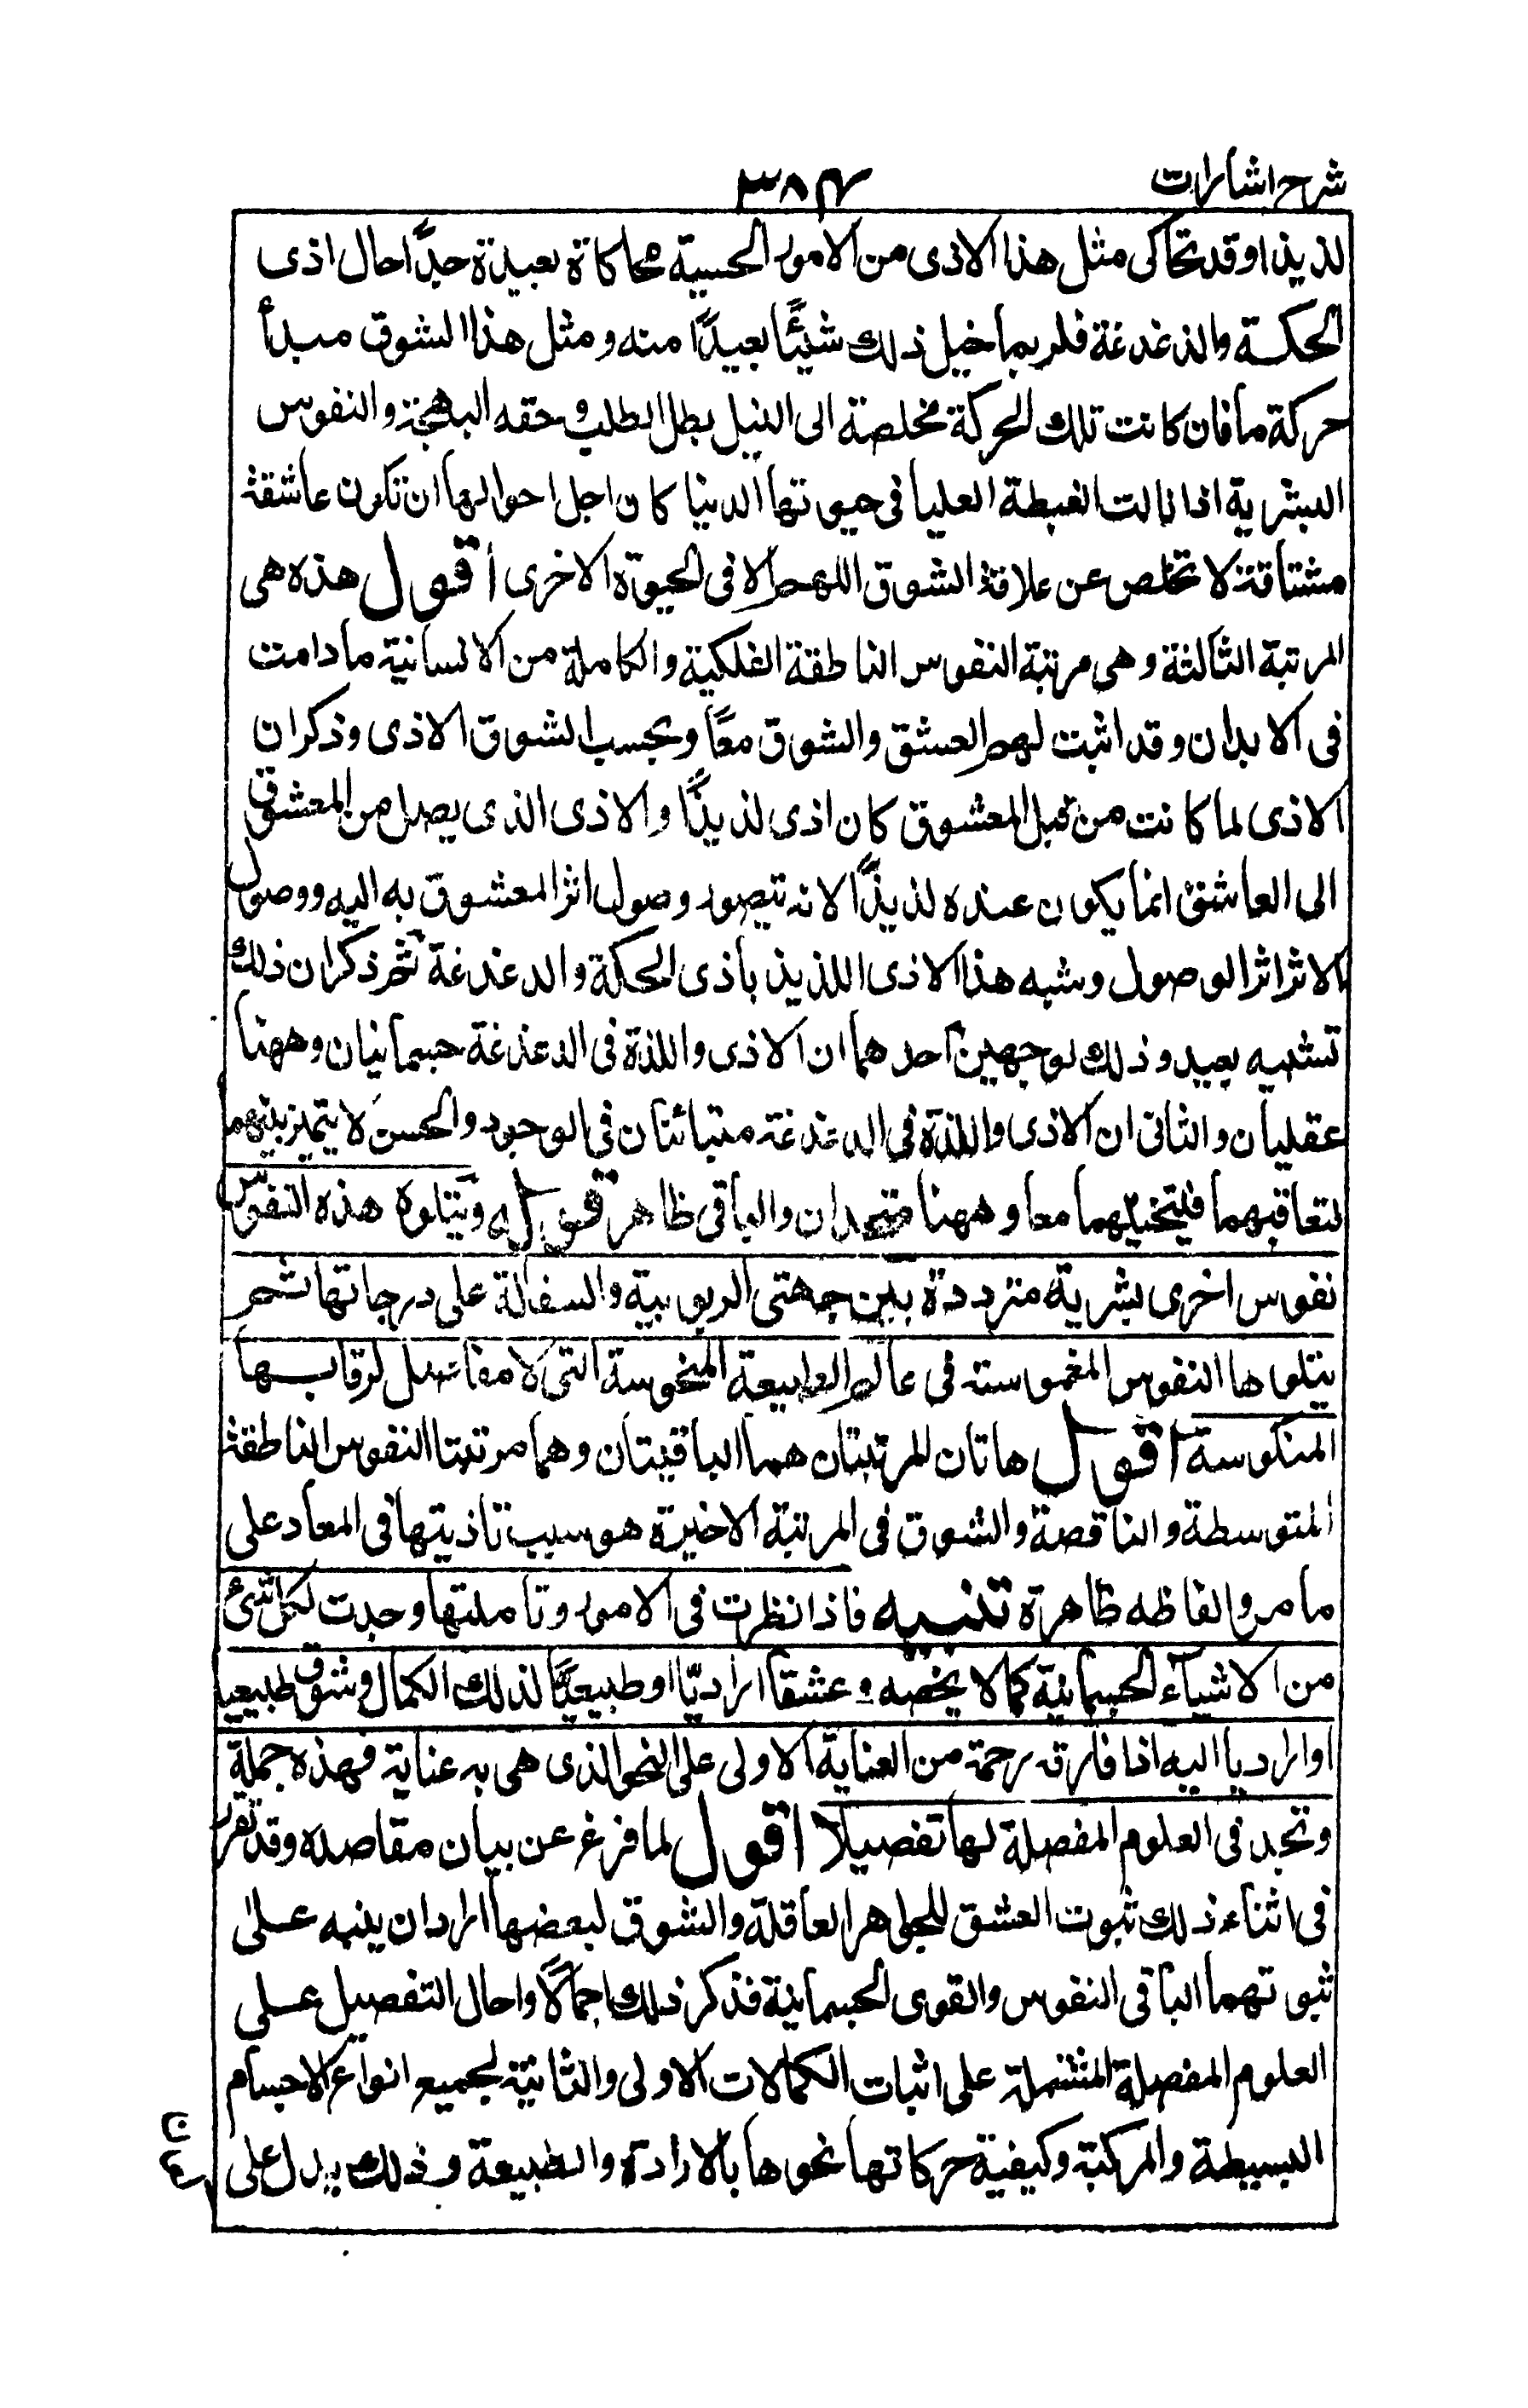 شرح اشارات
٣٨۴
لذيذا وقد تحاكى مثل هذا الاذى من الامور الحسية محاكاة بعيدة جدًّا حال اذى
الحكة والدغدغة فلربما خيل ذلك شيئًا بعيدًا منه ومثل هذا الشوق مبدأ
حركة ما فان كانت تلك الحركة مخلصة الى النيل بطل الطلب وحقه البهجة والنفوس
البشرية اذا نالت الغبطة العليا فى حيوتها الدنيا كان اجل احوالها ان تكون عاشقة
مشتاقة لا تخلص عن علاقة الشوق اللهم الا فى الحيوة الاخرى اقول هذه هى
المرتبة الثالثة وهى مرتبة النفوس الناطقة الفلكية والكاملة من الانسانية ما دامت
فى الابدان وقد اثبت لهم العشق والشوق معًا وبحسب الشوق الاذى وذكر ان
الاذى لما كانت من قبل المعشوق كان اذى لذيذًا والاذى الذى يصل من المعشوق
الى العاشق انما يكون عنده لذيذًا لانه تيصور وصول اثر المعشوق به اليه ووصول
الاثر اثر الوصول وشبه هذا الاذى اللذيذ باذى الحكة والدغدغة ثم ذكر ان ذلك
تشبيه بعيد وذلك لوجهين احدهما ان الاذى واللذة فى الدغدغة جسمانيان وههنا
عقليان والثانى ان الاذى واللذة فى الدغدغة متبائنان فى الوجود والحس لا يتميز بينهما
لتعاقبهما فيتخيلهما معا وههنا متحدان والباقى ظاهر قوله ويتلوه هذه النفوس
نفوس اخرى بشرية مترددة بين جهتى الربوبية والسفالة على درجاتها ثم
يتلوها النفوس المغموسة فى عالم الطبيعة المنحوسة التى لا مفاصل لرقابها
المنكوسة اقول هاتان المرتبتان هما الباقيتان وهما مرتبتا النفوس الناطقة
المتوسطة والناقصة والشوق فى المرتبة الاخيرة هو سبب تاذيتها فى المعاد على
ما مر والفاظه ظاهرة تنبيه فاذا نظرت فى الامور وتاملتها وجدت لكل شئ
من الاشياء الجسمانية كمالا يخصه وعشقا اراديّا او طبيعيًّا لذلك الكمال وشوقا طبيعيا
او اراديا اليه اذا فارقه رحمة من العناية الاولى على النحو الذى هى به عناية فهذه جملة
وتجد فى العلوم المفصلة لها تفصيلا اقول لما فرغ عن بيان مقاصده وقد تقرر
فى اثناء ذلك ثبوت العشق للجواهر العاقلة والشوق لبعضها اراد ان ينبه على
ثبوتهما لباقى النفوس والقوى الجسمانية فذكر ذلك اجمالًا واحال التفصيل على
العلوم المفصلة المشتملة على اثبات الكمالات الاولى والثانية لجميع انواع الاجسام
البسيطة والمركبة وكيفية حركاتها نحوها بالارادة والطبيعة وذلك يدل على